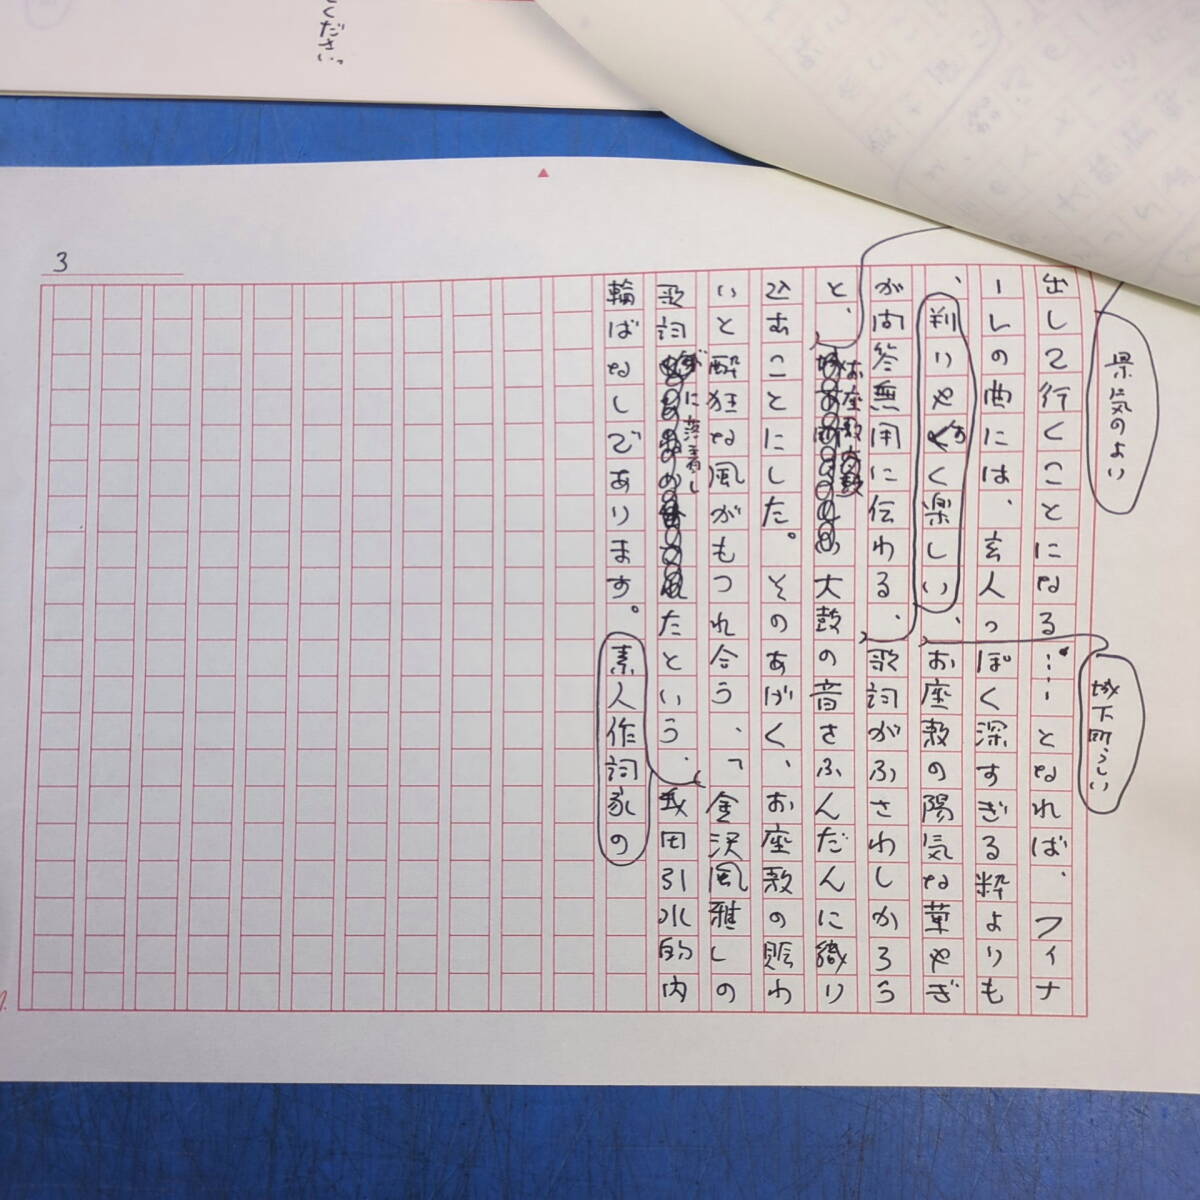 景気のよい
城下町らしい
出して行くことになる……となれば、フィナ
ーレの曲には、玄人っぽく深すぎる粋よりも
、判りやすく楽しい、お座敷の陽気な華やぎ
が問答無用に伝わる、歌詞がふさわしかろう
と、お座敷太鼓の音さふんだんに織り
込むことにした。そのあげく、お座敷の賑わ
いと酔狂な風がもつれ合う、「金沢風雅」の
歌詞に落着したという、我田引水的内
輪ばなしであります。素人作詞家の
3
ください。